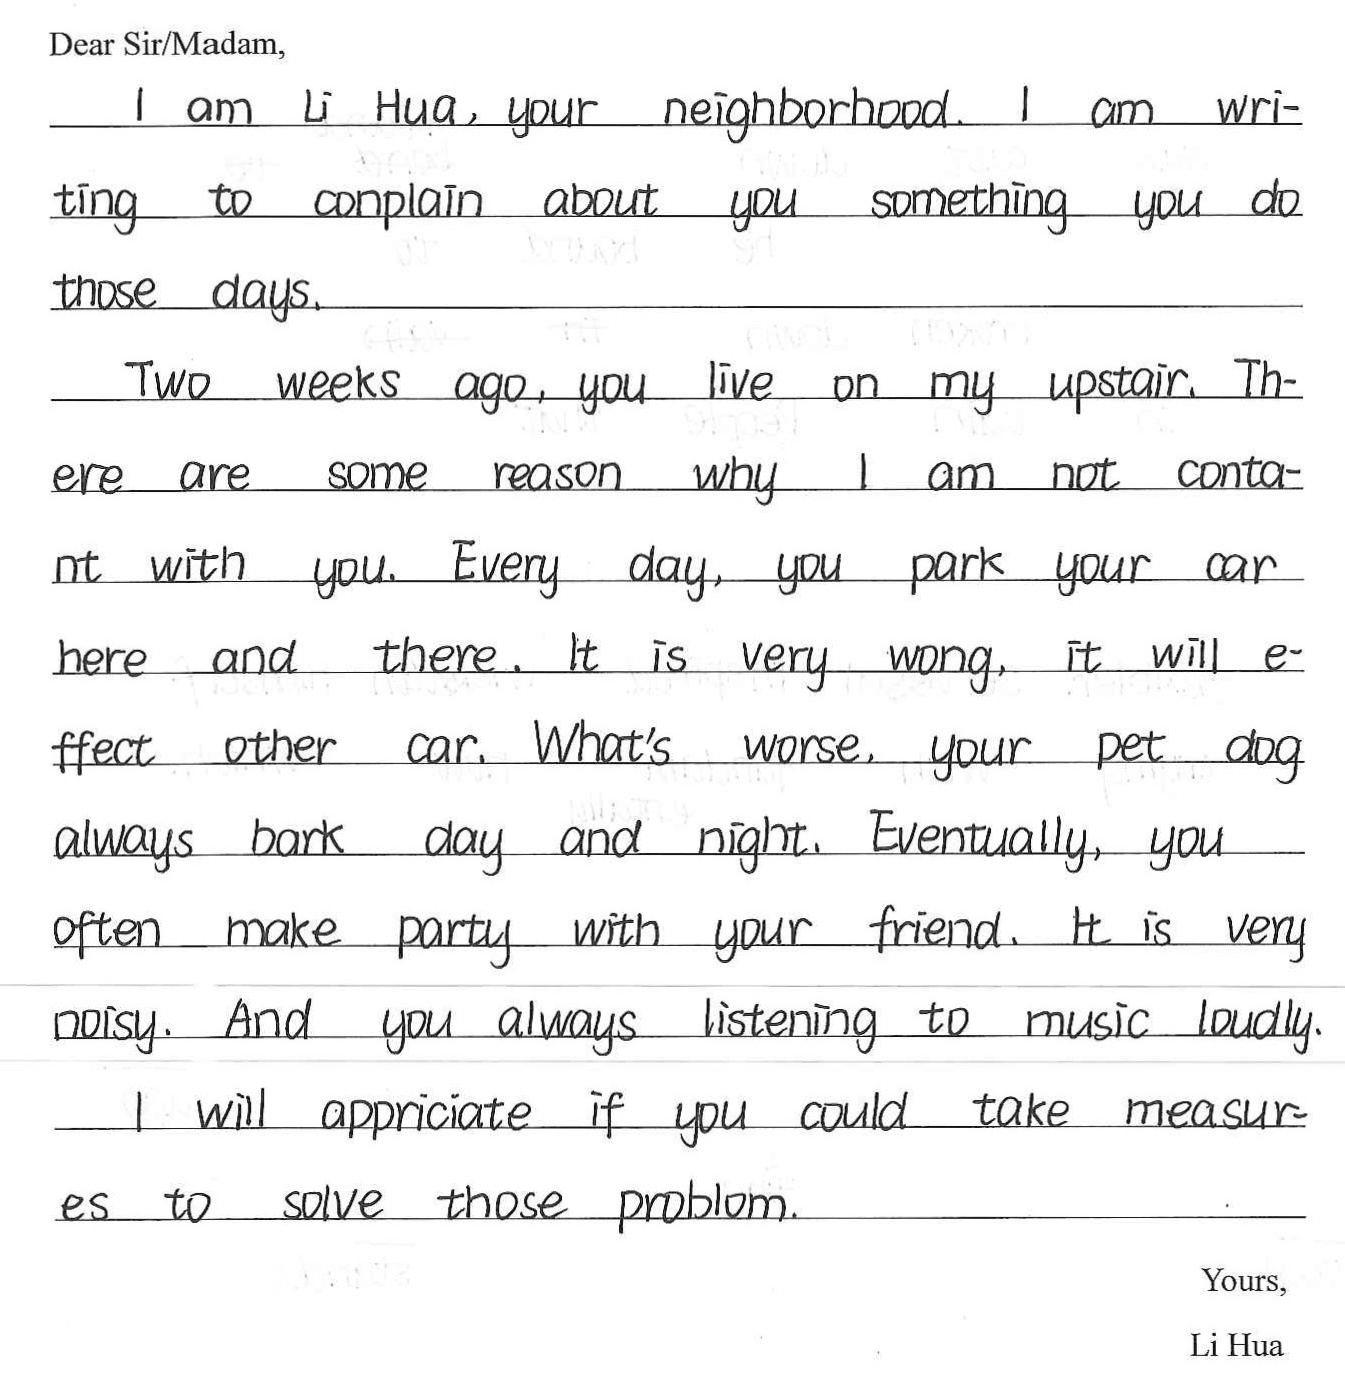 Dear Sir/Madam,
I am Li Hua, your neighborhood. I am wri-
ting to conplain about you something you do
those days.
Two weeks ago, you live on my upstair. Th-
ere are some reason why I am not conta-
nt with you. Every day, you park your car
here and there. It is very wong, it will e-
ffect other car. What's worse, your pet dog
always bark day and night. Eventually, you
often make party with your friend. It is very
noisy. And you always listening to music loudly.
I will appriciate if you could take measur-
es to solve those problom.
Yours,
Li Hua